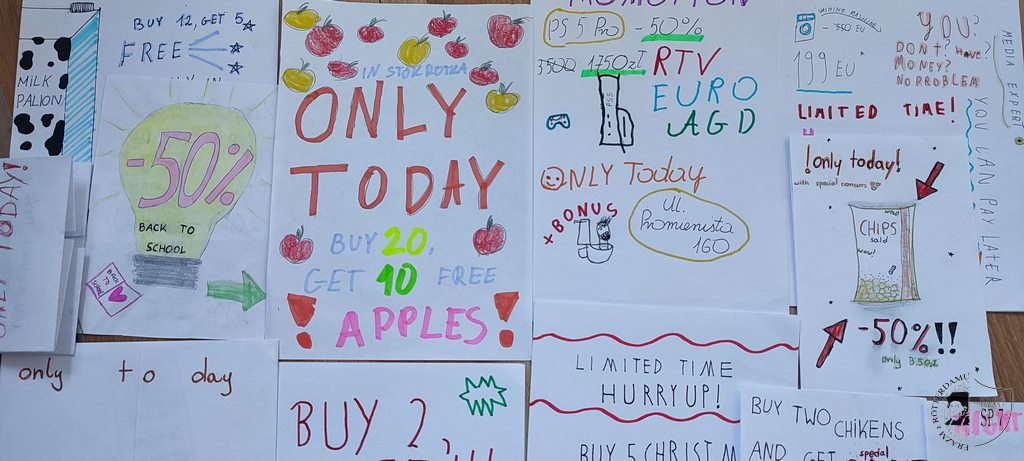 BUY 12, GET 5
FREE
MILK
PALION
-50%
BACK TO
SCHOOL
BACK
TO
School
IN STOKROTKA
ONLY
TODAY
BUY 20,
GET 10 FREE
APPLES
PROMOTION
PS 5 Pro -50%
3500 1750zł RTV
EURO
AGD
PS5
ONLY Today
+BONUS
Ul.
Promienista
160
WASHING MACHINE
199 EU
YOU?
DON'T HAVE?
MONEY?
NO PROBLEM
LIMITED TIME!
MEDIA EXPERT
YOU CAN PAY LATER
!only today!
with special
CHIPS
wow!
-50%!!
only
TODAY!
only to day
BUY 2,
LIMITED TIME
HURRY UP!
BUY 5 CHRISTM
BUY TWO
CHIKENS
AND GET special
ERAZM Z ROTTERDAMU
SP 7